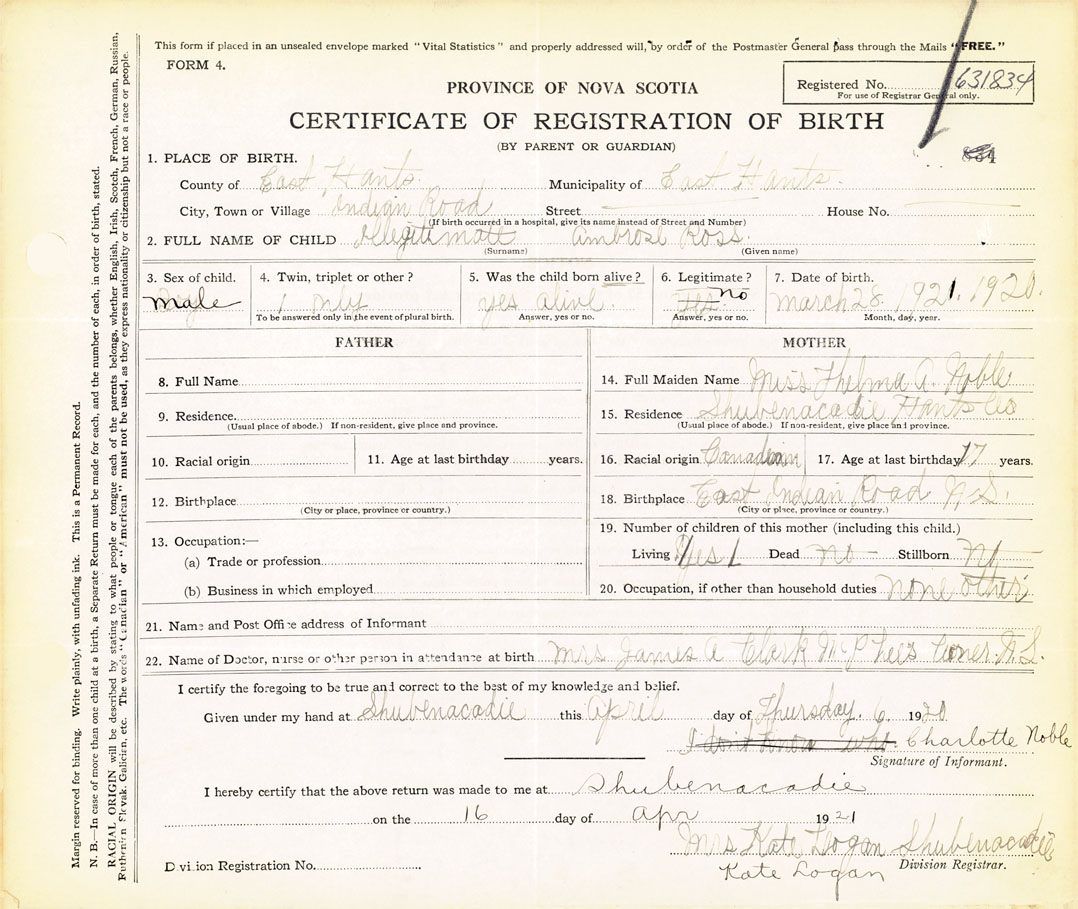 This form if placed in an unsealed envelope marked "Vital Statistics" and properly addressed will, by order of the Postmaster General pass through the Mails "FREE."
FORM 4.
Registered No. 631834
For use of Registrar General only.
PROVINCE OF NOVA SCOTIA
CERTIFICATE OF REGISTRATION OF BIRTH
(BY PARENT OR GUARDIAN)
1. PLACE OF BIRTH.
County of East Hants Municipality of East Hants.
City, Town or Village Indian Road Street House No.
(If birth occurred in a hospital, give its name instead of Street and Number)
2. FULL NAME OF CHILD Illegitimate Ambrose Ross.
(Surname) (Given name)
3. Sex of child. 4. Twin, triplet or other? 5. Was the child born alive? 6. Legitimate? 7. Date of birth.
male 1 only yes alive. Yes no March 28. 921. 1920.
To be answered only in the event of plural birth. Answer, yes or no. Answer, yes or no. Month, day, year.
FATHER
8. Full Name
9. Residence.
(Usual place of abode.) If non-resident, give place and province.
10. Racial origin 11. Age at last birthday years.
12. Birthplace
(City or place, province or country.)
13. Occupation:—
(a) Trade or profession
(b) Business in which employed
MOTHER
14. Full Maiden Name Miss Thelma A. Noble
15. Residence Shubenacadie Hants Co
(Usual place of abode.) If non-resident, give place and province.
16. Racial origin Canadian 17. Age at last birthday 17 years.
18. Birthplace East Indian Road N.S.
(City or place, province or country.)
19. Number of children of this mother (including this child.)
Living Yes 1 Dead no Stillborn No
20. Occupation, if other than household duties None other
21. Name and Post Office address of Informant
22. Name of Doctor, nurse or other person in attendance at birth Mrs James A Clark McPhee's Corner. N.S.
I certify the foregoing to be true and correct to the best of my knowledge and belief.
Given under my hand at Shubenacadie this April day of Thursday. 6 1920
I don't know who. Charlotte Noble
Signature of Informant.
I hereby certify that the above return was made to me at Shubenacadie
on the 16 day of Apr 1921
Mrs Kate Logan Shubenacadie
Division Registration No. Division Registrar.
Kate Logan
Margin reserved for binding. Write plainly, with unfading ink. This is a Permanent Record.
N. B.—In case of more than one child at a birth, a Separate Return must be made for each, and the number of each, in order of birth, stated.
RACIAL ORIGIN will be described by stating to what people or tongue each of the parents belongs, whether English, Irish, Scotch, French, German, Russian,
Ruthenian, Slovak, Galician, etc. The words "Canadian" or "American" must not be used, as they express nationality or citizenship but not a race or people.